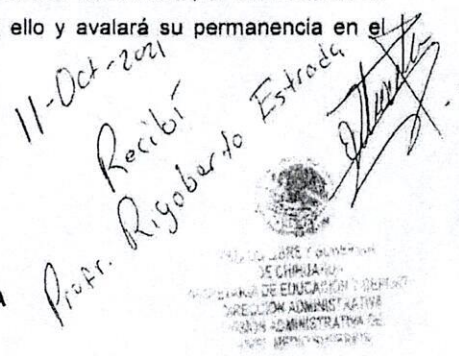 ello y avalará su permanencia en el
11-Oct-2021
Recibí
Profr. Rigoberto Estrada
DE CHIHUAHUA
DE EDUCACION Y DEPORTE
DIRECCION ADMINISTRATIVA
ADMINISTRATIVA DE